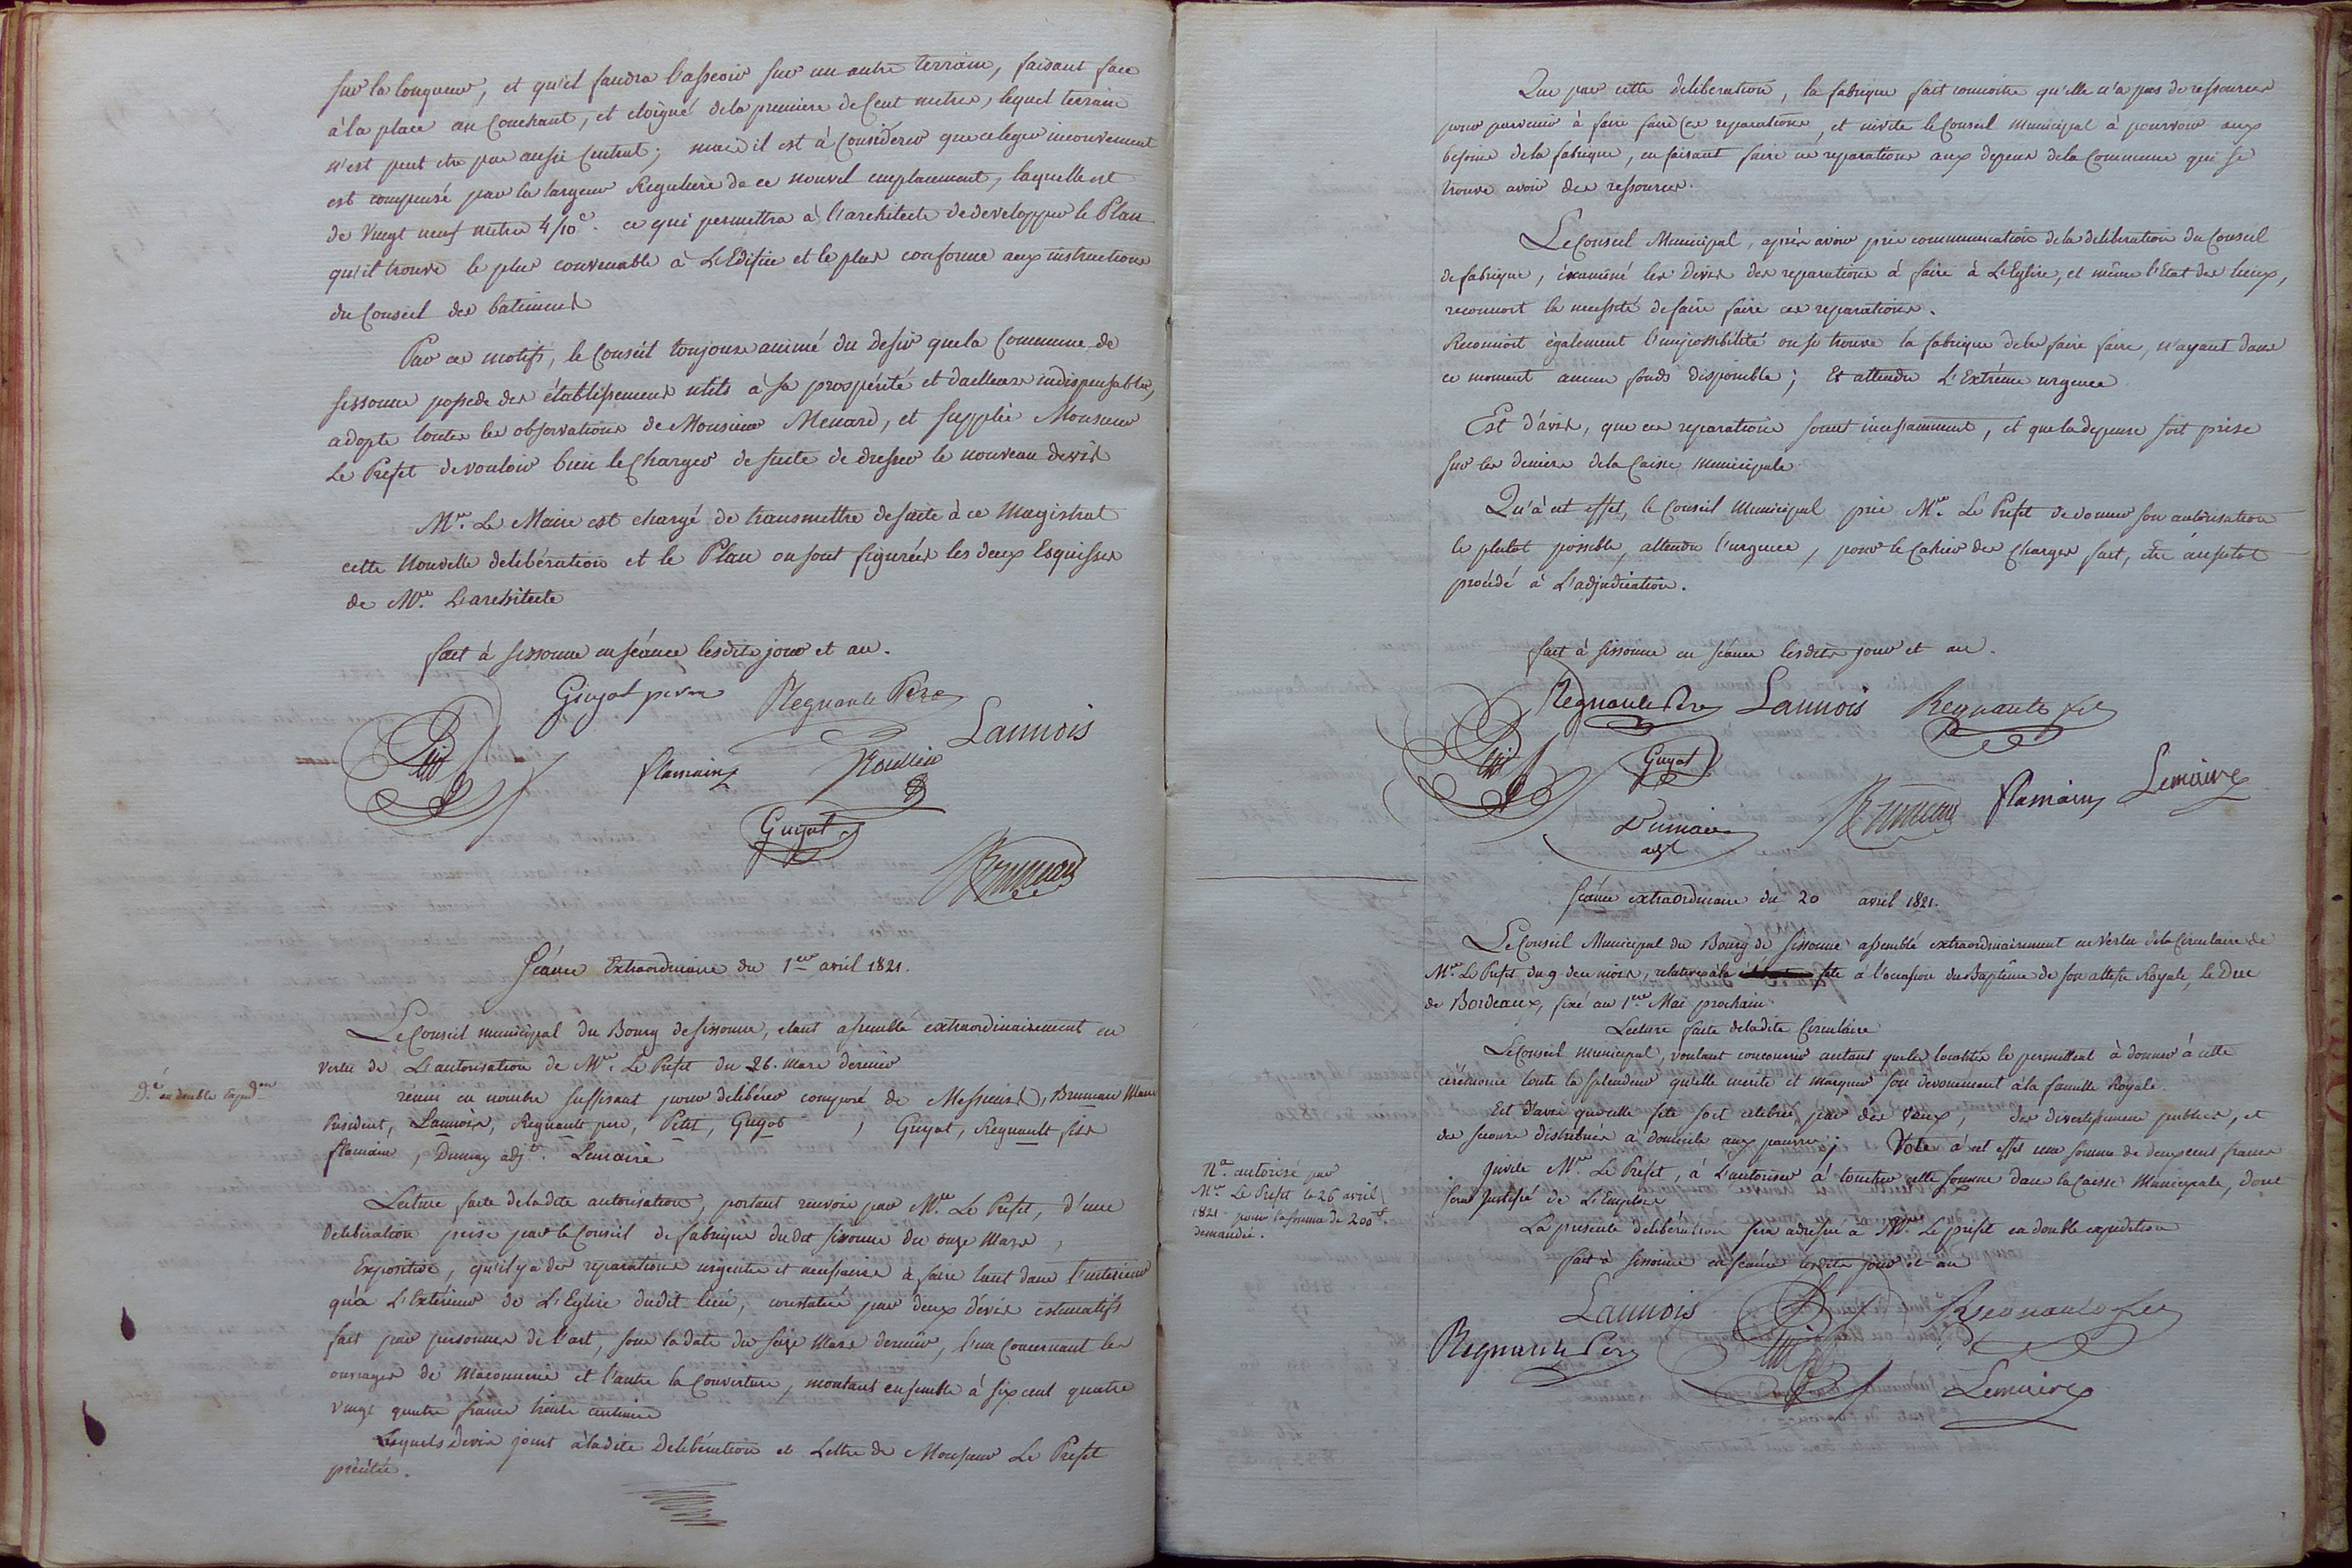 sur la longueur, et qu'il faudra l'asseoir sur un autre terrain, faisant face
à la place au Couchant, et eloigné dela premiere de Cent metres, lequel terrain
n'est peut etre pas aussi Central; mais il est à Considérer que ce leger inconvenient
est compensé par la largeur Reguliere de ce nouvel emplacement, laquelle est
de Vingt neuf metres 4/10e. ce qui permettra à l'architecte de developper le Plan
qu'il trouve le plus convenable à L'Edifice et le plus conforme aux instructions
du Conseil des batimens
Par ces motifs, le Conseil toujours animé du Desir que la Commune de
sissonne possede des établissemens utils à sa prospérité et dailleurs indispensables,
adopte toutes les observations de Monsieur Menard, et supplie Monsieur
Le Prefet de vouloir bien le Charger de suite de dresser le nouveau devis
Mr. Le Maire est chargé de transmettre desuite à ce Magistrat
cette Nouvelle delibération et le Plan ou sont figurées les deux Esquisses
de Mr. L'architecte
fait à sissonne en séance lesdits jour et an.
Guyot Regnault Père
Lannois
Petit flamain
Guyot
Bruneau
Séance Extraordinaire du 1er avril 1821.
Le Conseil municipal du Bourg de sissonne, etant assemble extraordinairement en
vertu de L'autorisation de Mr. Le Prefet du 26. Mars dernier
Dé. en double Expedon
réuni en nombre suffisant pour delibérer composé de Messieurs, Bruneau Maire
President, Lannois, Regnault pere, Petit, Guyot , Guyot, Regnault fils
flamain, Dumay adjt. Lemaire
Lecture faite deladite autorisation, portant renvoi par Mr. Le Prefet, d'une
Deliberation prise par le Conseil de fabrique du dit sissonne du onze Mars,
Expositive, qu'il y a des reparations urgentes et necessaires à faire tant dans l'interieur
qu'a L'Extérieur de L'Eglise dudit lieu, constatées par deux dévis estimatifs
fait par personnes de l'art, sous la date du seize Mars dernier, l'un Concernant les
ouvrages de Maconnerie et l'autre la Couverture, montant ensemble à six cent quatre
vingt quatre francs trente centimes
Lesquels Devis joint à ladite Delibération et Lettre de Monsieur Le Prefet
précitée.
Que par cette deliberation, la fabrique fait connoitre qu'elle n'a pas de ressources
pour parvenir à faire faire ces reparations, et invite le Conseil municipal à pourvoir aux
besoins dela fabrique, en faisant faire ces reparations aux depens dela Commune qui se
trouve avoir des ressources.
Le Conseil Municipal, après avoir pris communication dela deliberation du Conseil
de fabrique, éxaminé les Devis des reparations à faire à L'Eglise, et même l'Etat des lieux,
reconnoit la necessité de faire faire ces reparations.
Reconnoit également l'impossibilité ou se trouve la fabrique deles faire faire, n'ayant dans
ce moment aucun fonds disponible; Et attendu L'Extréme urgence
Est d'avis, que ces reparations soient incessamment, et que la depense soit prise
sur les deniers dela Caisse municipale
Qu'à cet effet, le Conseil Municipal prie Mr. Le Prefet de donner son autorisation
le plutôt possible, attendu l'urgence, pour le Cahier des Charges fait, etre aussitot
procédé à L'adjudication.
fait à sissonne en séance lesdits jour et an.
Regnault Pere Lannois Regnault fils
Petit Guyot
Dumay
adjt
Bruneau flamain Lemaire
Séance extraordinaire du 20 avril 1821.
Le Conseil Municipal du Bourg de Sissonne assemblé extraordinairement en Vertu dela Circulaire de
Mr. Le Prefet du 9 de ce mois, relative à la fete à l'occasion du Baptême de son altesse Royale, le Duc
de Bordeaux, fixé au 1er Mai prochain.
Lecture faite deladite Circulaire
Le Conseil municipal, voulant concourrir autant que les localités le permettent à donner à cette
cérémonie toute la splendeur qu'elle merite et marquer son devouement à la famille Royale.
Est d'avis que cette fete soit celebrée par des Vœux, des divertissemens publics, et
des secours distribués à domicile aux pauvres; Vote à cet effet une somme de deux cent francs
Invite Mr. Le Prefet, à L'autoriser à toucher cette somme dans la Caisse Municipale, dont
sera Justifié de L'Emploi
La presente delibération sera adressée à Mr. Le prefet en double expedition
Na. autorisé par
Mr. Le Prefet le 26 avril
1821 pour la somme de 200f.
demandée.
fait à sissonne en séance lesdits jour et an
Lannois Petit Regnault fils
Regnault Pere
Lemaire